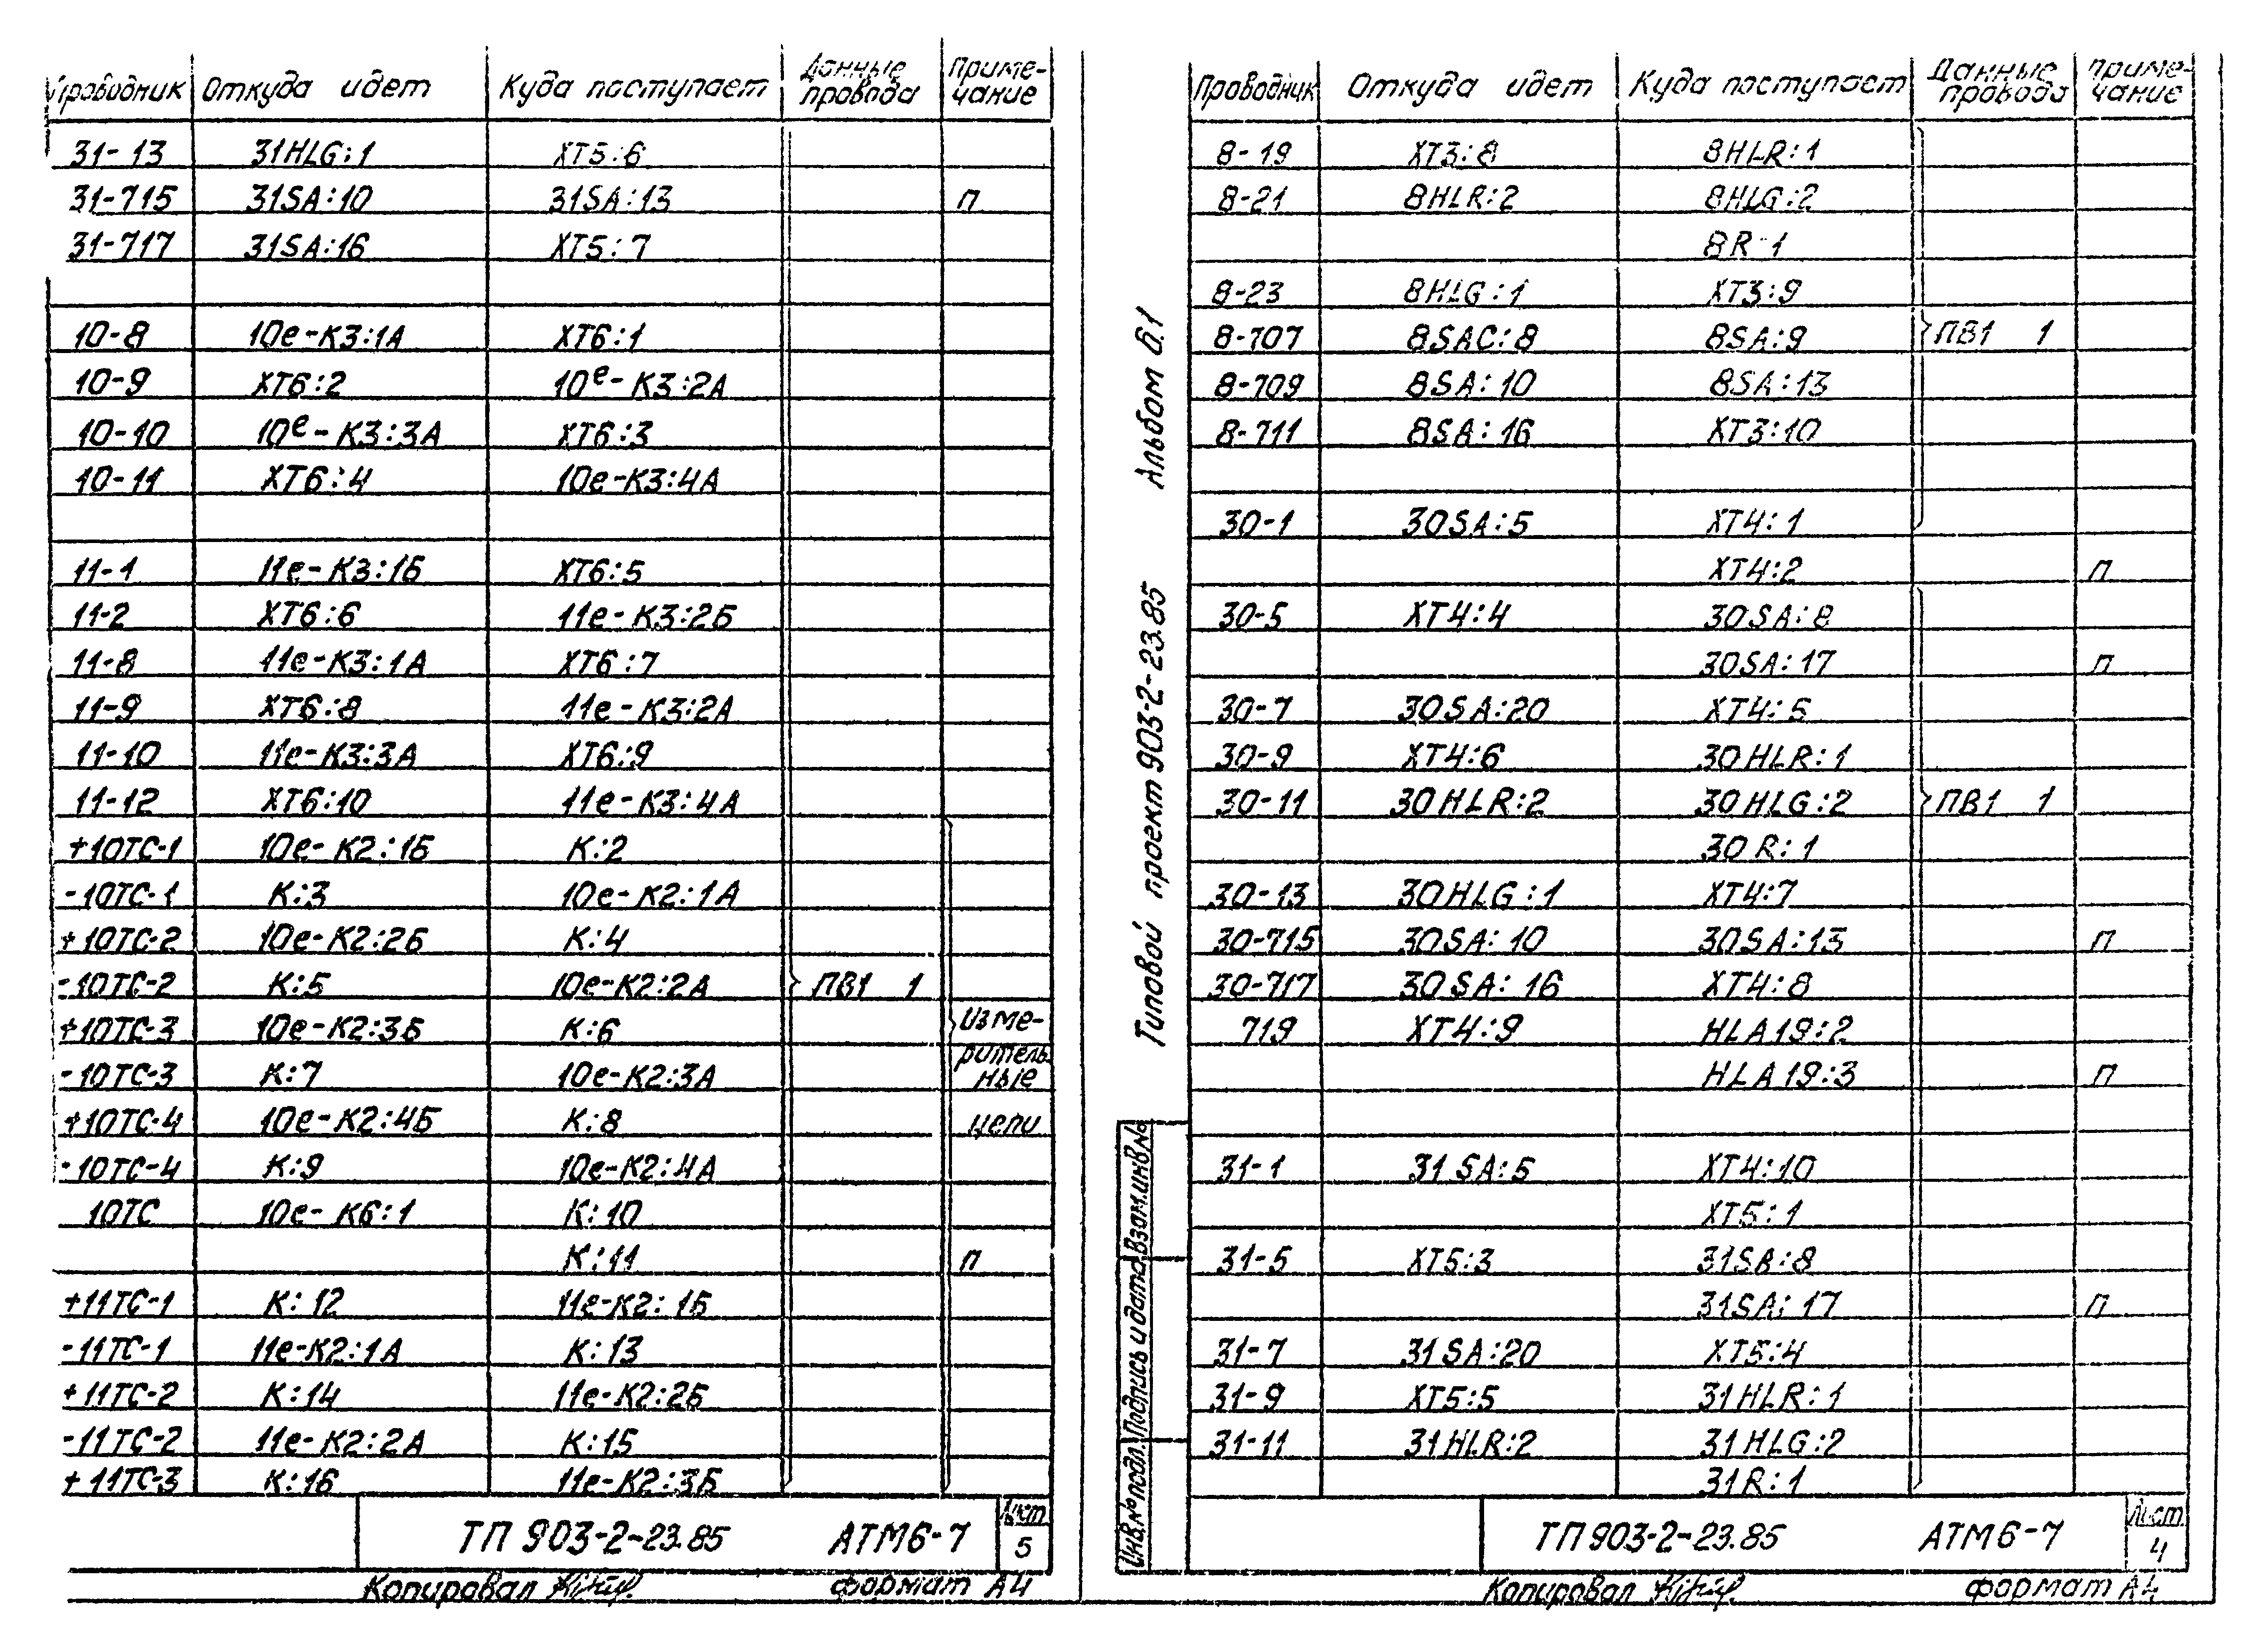 Проводник Откуда идет Куда поступает Данные провода Примечание
31-13 31HLG:1 XT5:6
31-715 31SA:10 31SA:13 п
31-717 31SA:16 XT5:7
10-8 10е-К3:1А XT6:1
10-9 XT6:2 10е-К3:2А
10-10 10е-К3:3А XT6:3
10-11 XT6:4 10е-К3:4А
11-1 11е-К3:1Б XT6:5
11-2 XT6:6 11е-К3:2Б
11-8 11е-К3:1А XT6:7
11-9 XT6:8 11е-К3:2А
11-10 11е-К3:3А XT6:9
11-12 XT6:10 11е-К3:4А
+10ТС-1 10е-К2:1Б К:2
-10ТС-1 К:3 10е-К2:1А
+10ТС-2 10е-К2:2Б К:4
-10ТС-2 К:5 10е-К2:2А ПВ1 1
+10ТС-3 10е-К2:3Б К:6 Изме-
ритель
-10ТС-3 К:7 10е-К2:3А ные
+10ТС-4 10е-К2:4Б К:8 цепи
-10ТС-4 К:9 10е-К2:4А
10ТС 10е-К6:1 К:10
К:11 п
+11ТС-1 К:12 11е-К2:1Б
-11ТС-1 11е-К2:1А К:13
+11ТС-2 К:14 11е-К2:2Б
-11ТС-2 11е-К2:2А К:15
+11ТС-3 К:16 11е-К2:3Б
ТП 903-2-23.85 АТМ6-7 Лист 5
Копировал формат А4
Альбом 6.1
Типовой проект 903-2-23.85
Проводник Откуда идет Куда поступает Данные провода Примечание
8-19 XT3:8 8HLR:1
8-21 8HLR:2 8HLG:2
8R:1
8-23 8HLG:1 XT3:9
8-707 8SAC:8 8SA:9 ПВ1 1
8-709 8SA:10 8SA:13
8-711 8SA:16 XT3:10
30-1 30SA:5 XT4:1
XT4:2 п
30-5 XT4:4 30SA:8
30SA:17 п
30-7 30SA:20 XT4:5
30-9 XT4:6 30HLR:1
30-11 30HLR:2 30HLG:2 ПВ1 1
30R:1
30-13 30HLG:1 XT4:7
30-715 30SA:10 30SA:13 п
30-717 30SA:16 XT4:8
719 XT4:9 HLA19:2
HLA19:3 п
31-1 31SA:5 XT4:10
XT5:1
31-5 XT5:3 31SA:8
31SA:17 п
31-7 31SA:20 XT5:4
31-9 XT5:5 31HLR:1
31-11 31HLR:2 31HLG:2
31R:1
Инв.№подл. Подпись и дата Взам.инв.№
ТП 903-2-23.85 АТМ6-7 Лист 4
Копировал формат А4